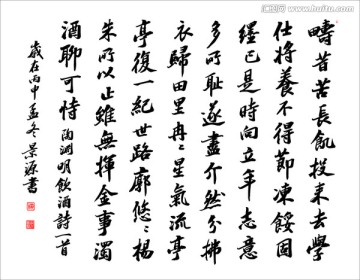 疇昔苦長飢投耒去學
仕將養不得節凍餒固
纏已是時向立年志意
多所耻遂盡介然分拂
衣歸田里冉〻星氣流亭
亭復一紀世路廓悠〻楊
朱所以止雖無揮金事濁
酒聊可恃 陶淵明飲酒詩一首
歲在丙申孟冬景源書